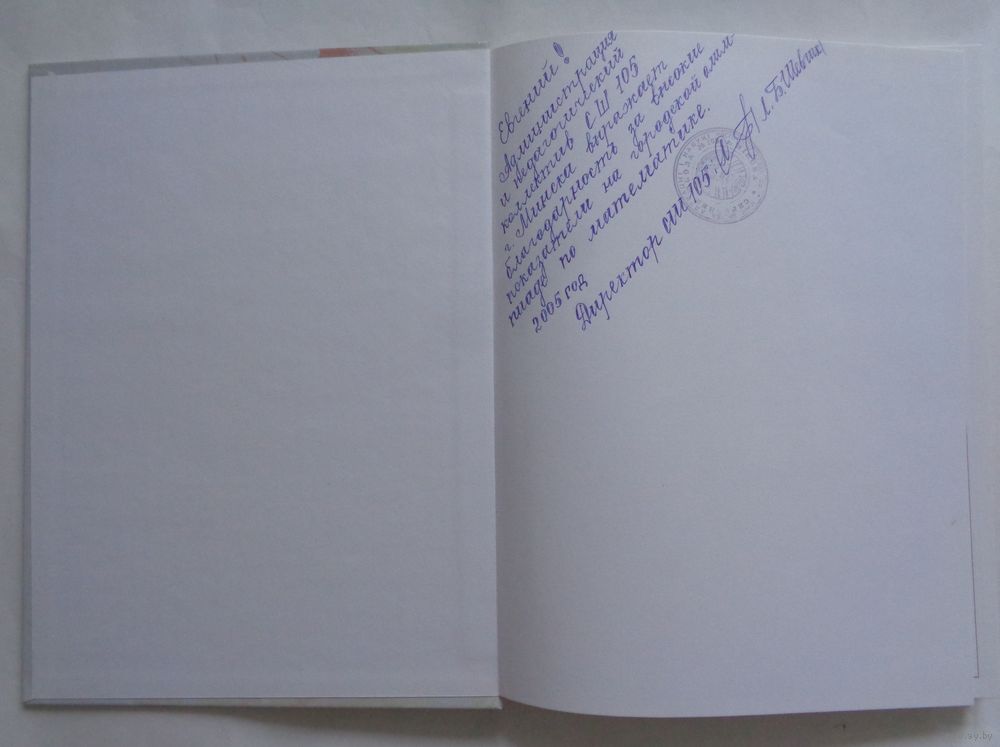 Евгений!
Администрация
и педагогический
коллектив СШ 105
г. Минска выражает
благодарность за высокие
показатели на городской олим-
пиаде по математике.
2005 год
Директор СШ 105 Л.Б. Шевчик
ay.by